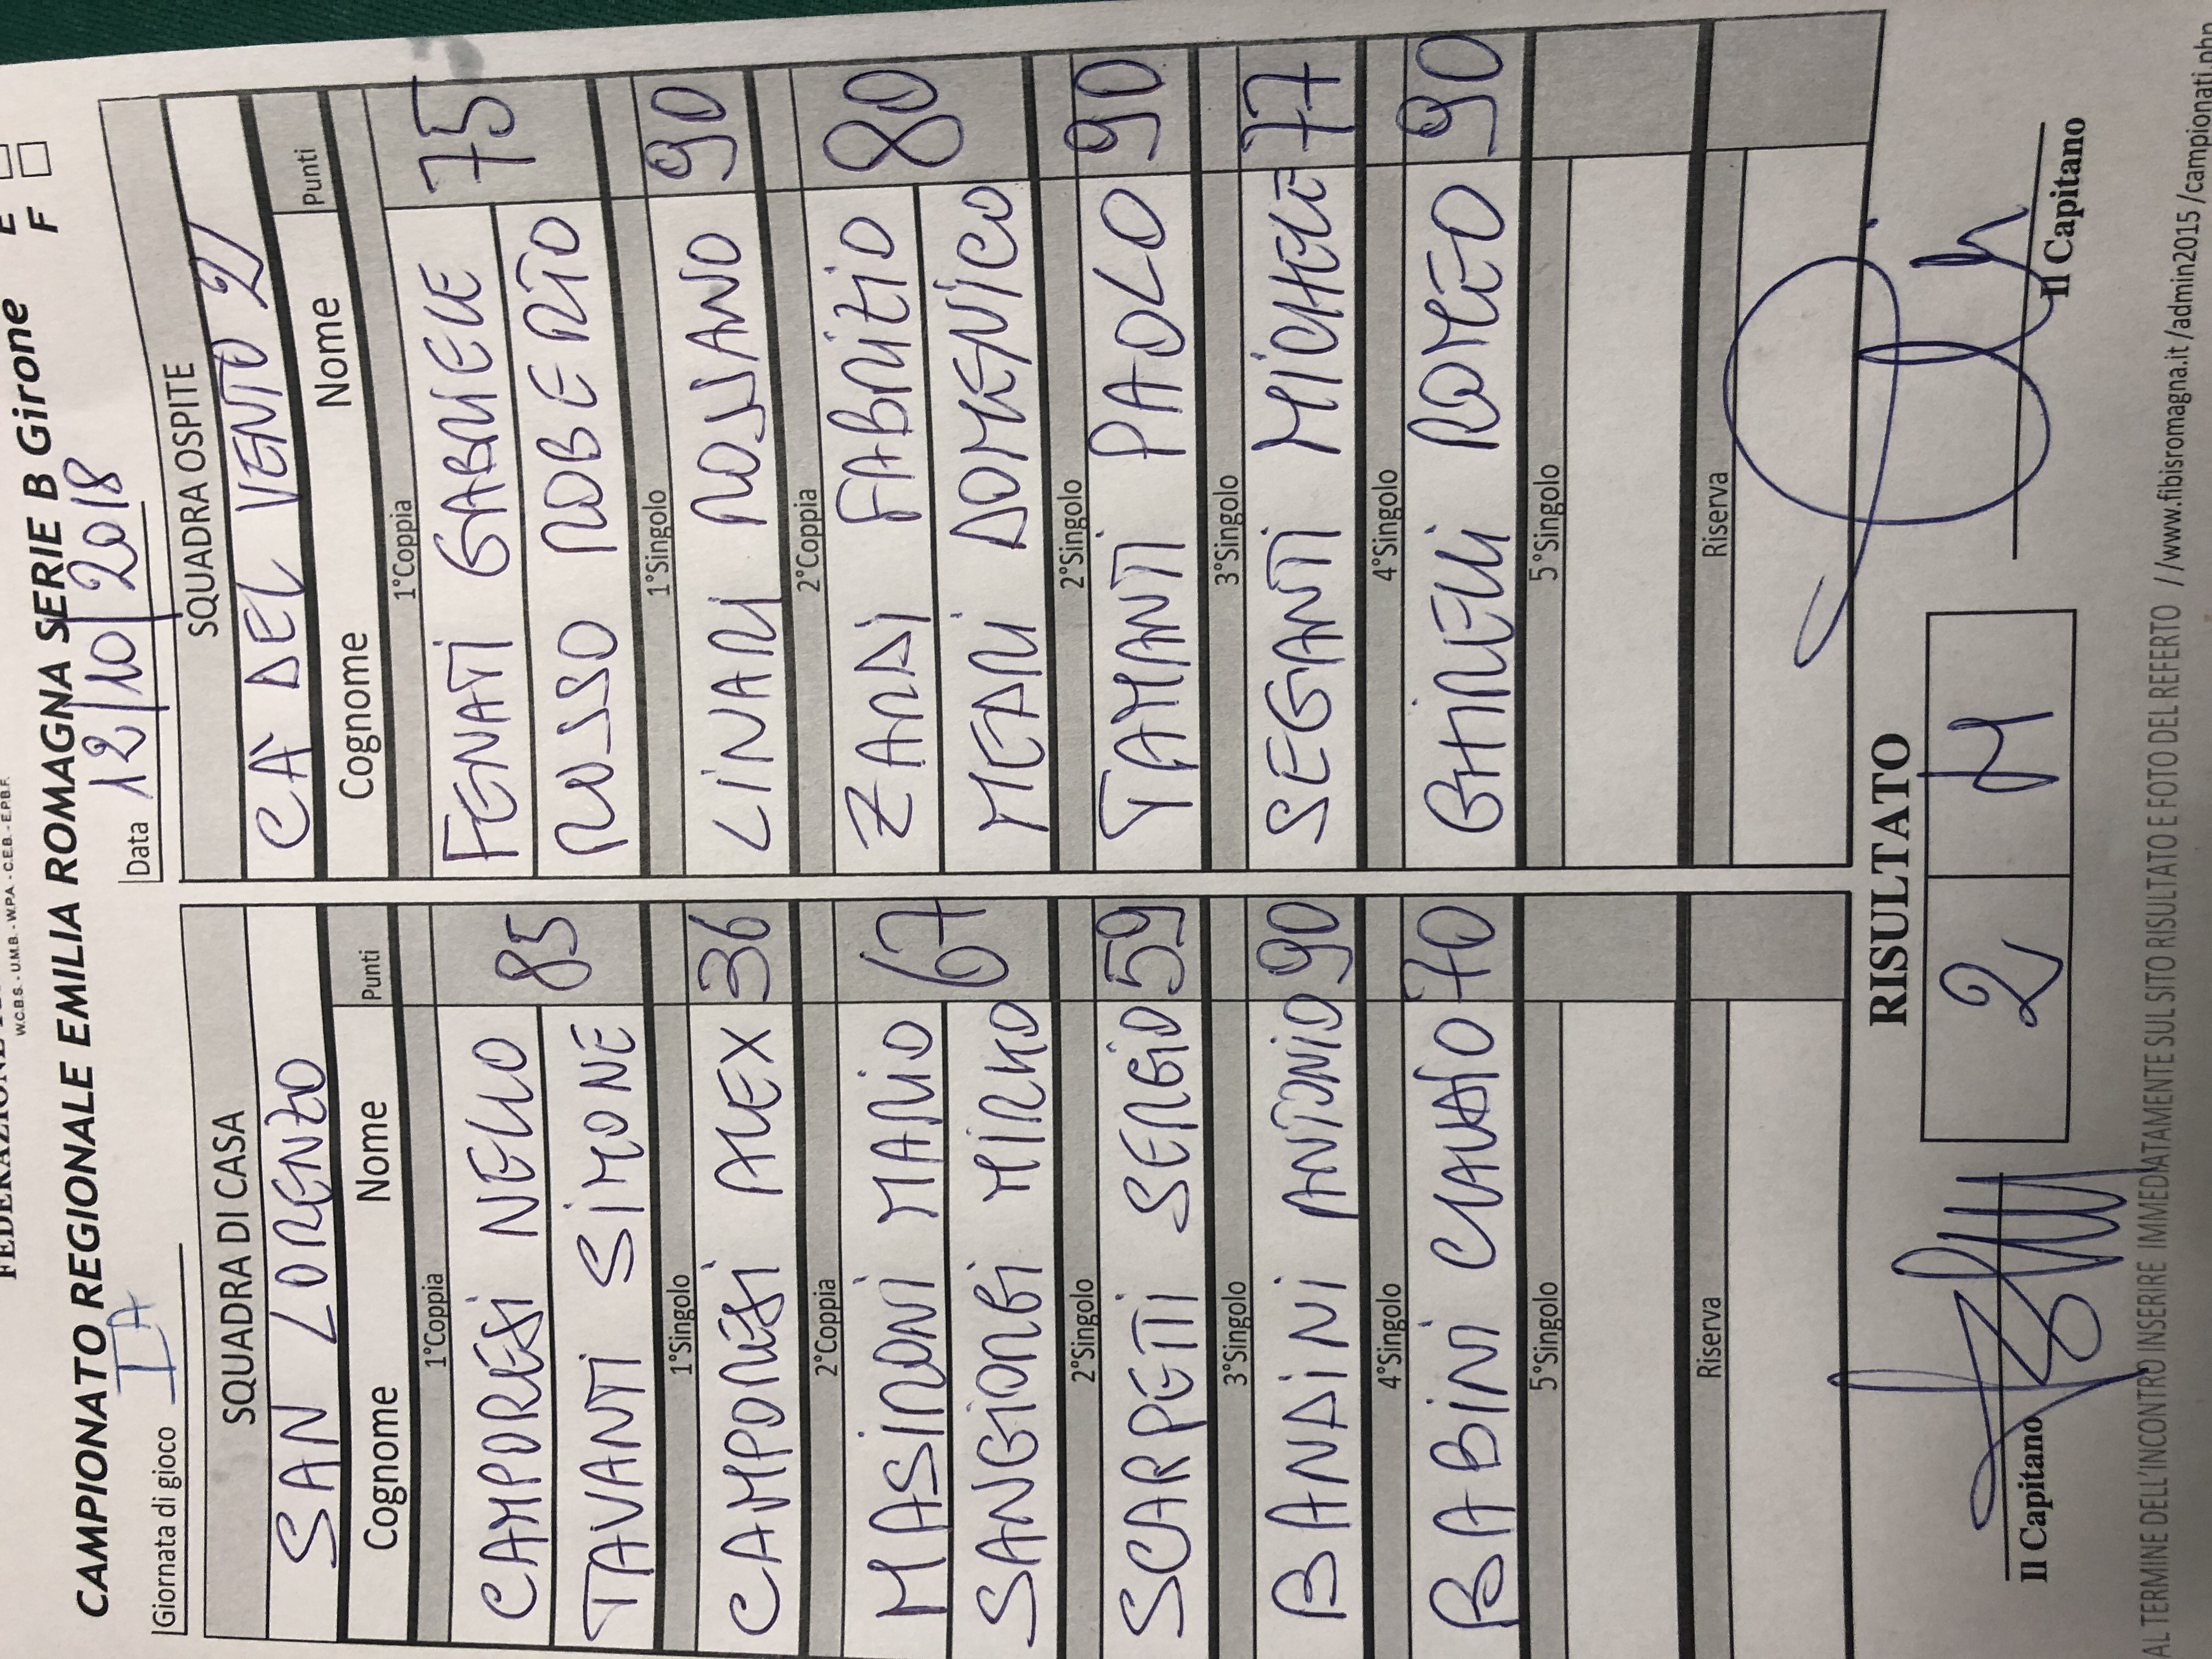 W.C.B.S. - U.M.B. - W.P.A. - C.E.B. - E.P.B.F.
CAMPIONATO REGIONALE EMILIA ROMAGNA SERIE B Girone E
F
Giornata di gioco IA
Data 12/10/2018
SQUADRA DI CASA
SAN LORENZO
Cognome Nome Punti
1°Coppia
CAMPORESI NELLO 85
TAVANTI SIMONE
1°Singolo
CAMPORESI ALEX 36
2°Coppia
MASIRONI MARIO 67
SANGIORGI MIRKO
2°Singolo
SCARPETTI SERGIO 59
3°Singolo
BANDINI ANTONIO 90
4°Singolo
BABINI CLAUDIO 70
5°Singolo
Riserva
SQUADRA OSPITE
CA' DEL VENTO 2
Cognome Nome Punti
1°Coppia
FENATI GABRIELE 75
RUSSO ROBERTO
1°Singolo
LINARI ROSSANO 90
2°Coppia
ZARDI FABRIZIO 80
MEDRI DOMENICO
2°Singolo
TAMANTI PAOLO 90
3°Singolo
SEGANTI MICHELE 77
4°Singolo
GHIRELLI ROMEO 90
5°Singolo
Riserva
RISULTATO
2 4
Il Capitano
Il Capitano
AL TERMINE DELL'INCONTRO INSERIRE IMMEDIATAMENTE SUL SITO RISULTATO E FOTO DEL REFERTO //www.fibisromagna.it/admin2015/campionati.php